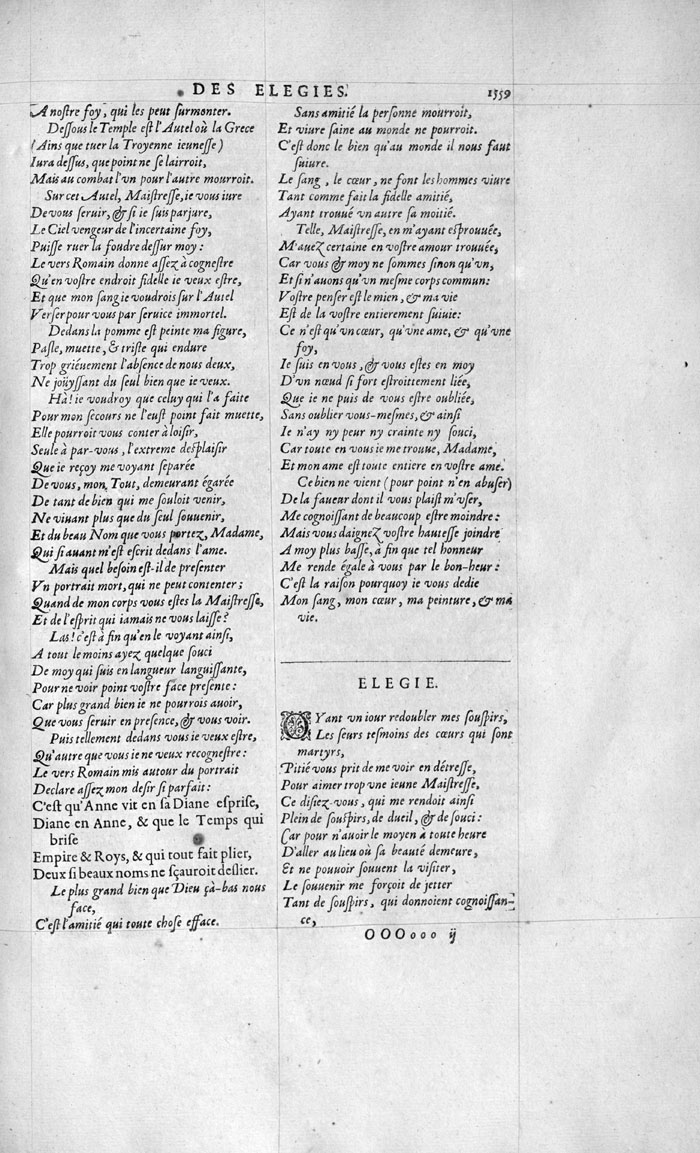 DES ELEGIES. 1359
A nostre foy, qui les peut surmonter.
Dessous le Temple est l'Autel où la Grece
(Ains que tuer la Troyenne ieunesse)
Iura dessus, que point ne se lairroit,
Mais au combat l'vn pour l'autre mourroit.
Sur cet Autel, Maistresse, ie vous iure
De vous seruir, & si ie suis parjure,
Le Ciel vengeur de l'incertaine foy,
Puisse ruer la foudre dessur moy:
Le vers Romain donne assez à cognestre
Qu'en vostre endroit fidelle ie veux estre,
Et que mon sang ie voudrois sur l'Autel
Verser pour vous par seruice immortel.
Dedans la pomme est peinte ma figure,
Pasle, muette, & triste qui endure
Trop griéuement l'absence de nous deux,
Ne joüyssant du seul bien que ie veux.
Hà! ie voudroy que celuy qui l'a faite
Pour mon secours ne l'eust point fait muette,
Elle pourroit vous conter à loisir,
Seule à par-vous, l'extreme desplaisir
Que ie reçoy me voyant separée
De vous, mon Tout, demeurant égarée
De tant de bien qui me souloit venir,
Ne viuant plus que du seul souuenir,
Et du beau Nom que vous portez, Madame,
Qui si auant m'est escrit dedans l'ame.
Mais quel besoin est-il de presenter
Vn portrait mort, qui ne peut contenter;
Quand de mon corps vous estes la Maistresse,
Et de l'esprit qui iamais ne vous laisse?
Las! c'est à fin qu'en le voyant ainsi,
A tout le moins ayez quelque souci
De moy qui suis en langueur languissante,
Pour ne voir point vostre face presente:
Car plus grand bien ie ne pourrois auoir,
Que vous seruir en presence, & vous voir.
Puis tellement dedans vous ie veux estre,
Qu'autre que vous ie ne veux recognestre:
Le vers Romain mis autour du portrait
Declare assez mon desir si parfait:
C'est qu'Anne vit en sa Diane esprise,
Diane en Anne, & que le Temps qui
brise
Empire & Roys, & qui tout fait plier,
Deux si beaux noms ne sçauroit deslier.
Le plus grand bien que Dieu çà-bas nous
face,
C'est l'amitié qui toute chose efface.
Sans amitié la personne mourroit,
Et viure saine au monde ne pourroit.
C'est donc le bien qu'au monde il nous faut
suiure.
Le sang, le cœur, ne font les hommes viure
Tant comme fait la fidelle amitié,
Ayant trouué vn autre sa moitié.
Telle, Maistresse, en m'ayant esprouuée,
M'auez certaine en vostre amour trouuée,
Car vous & moy ne sommes sinon qu'vn,
Et si n'auons qu'vn mesme corps commun:
Vostre penser est le mien, & ma vie
Est de la vostre entierement suiuie:
Ce n'est qu'vn cœur, qu'vne ame, & qu'vne
foy,
Ie suis en vous, & vous estes en moy
D'vn nœud si fort estroittement liée,
Que ie ne puis de vous estre oubliée,
Sans oublier vous-mesmes, & ainsi
Ie n'ay ny peur ny crainte ny souci,
Car toute en vous ie me trouue, Madame,
Et mon ame est toute entiere en vostre ame.
Ce bien ne vient (pour point n'en abuser)
De la faueur dont il vous plaist m'vser,
Me cognoissant de beaucoup estre moindre:
Mais vous daignez vostre hautesse joindre
A moy plus basse, à fin que tel honneur
Me rende égale à vous par le bon-heur:
C'est la raison pourquoy ie vous dedie
Mon sang, mon cœur, ma peinture, & ma
vie.
ELEGIE.
OYant vn iour redoubler mes souspirs,
Les seurs tesmoins des cœurs qui sont
martyrs,
Pitié vous prit de me voir en détresse,
Pour aimer trop vne ieune Maistresse,
Ce disiez-vous, qui me rendoit ainsi
Plein de souspirs, de dueil, & de souci:
Car pour n'auoir le moyen à toute heure
D'aller au lieu où sa beauté demeure,
Et ne pouuoir souuent la visiter,
Le souuenir me forçoit de jetter
Tant de souspirs, qui donnoient cognoissan-
ce,
OOOooo ij